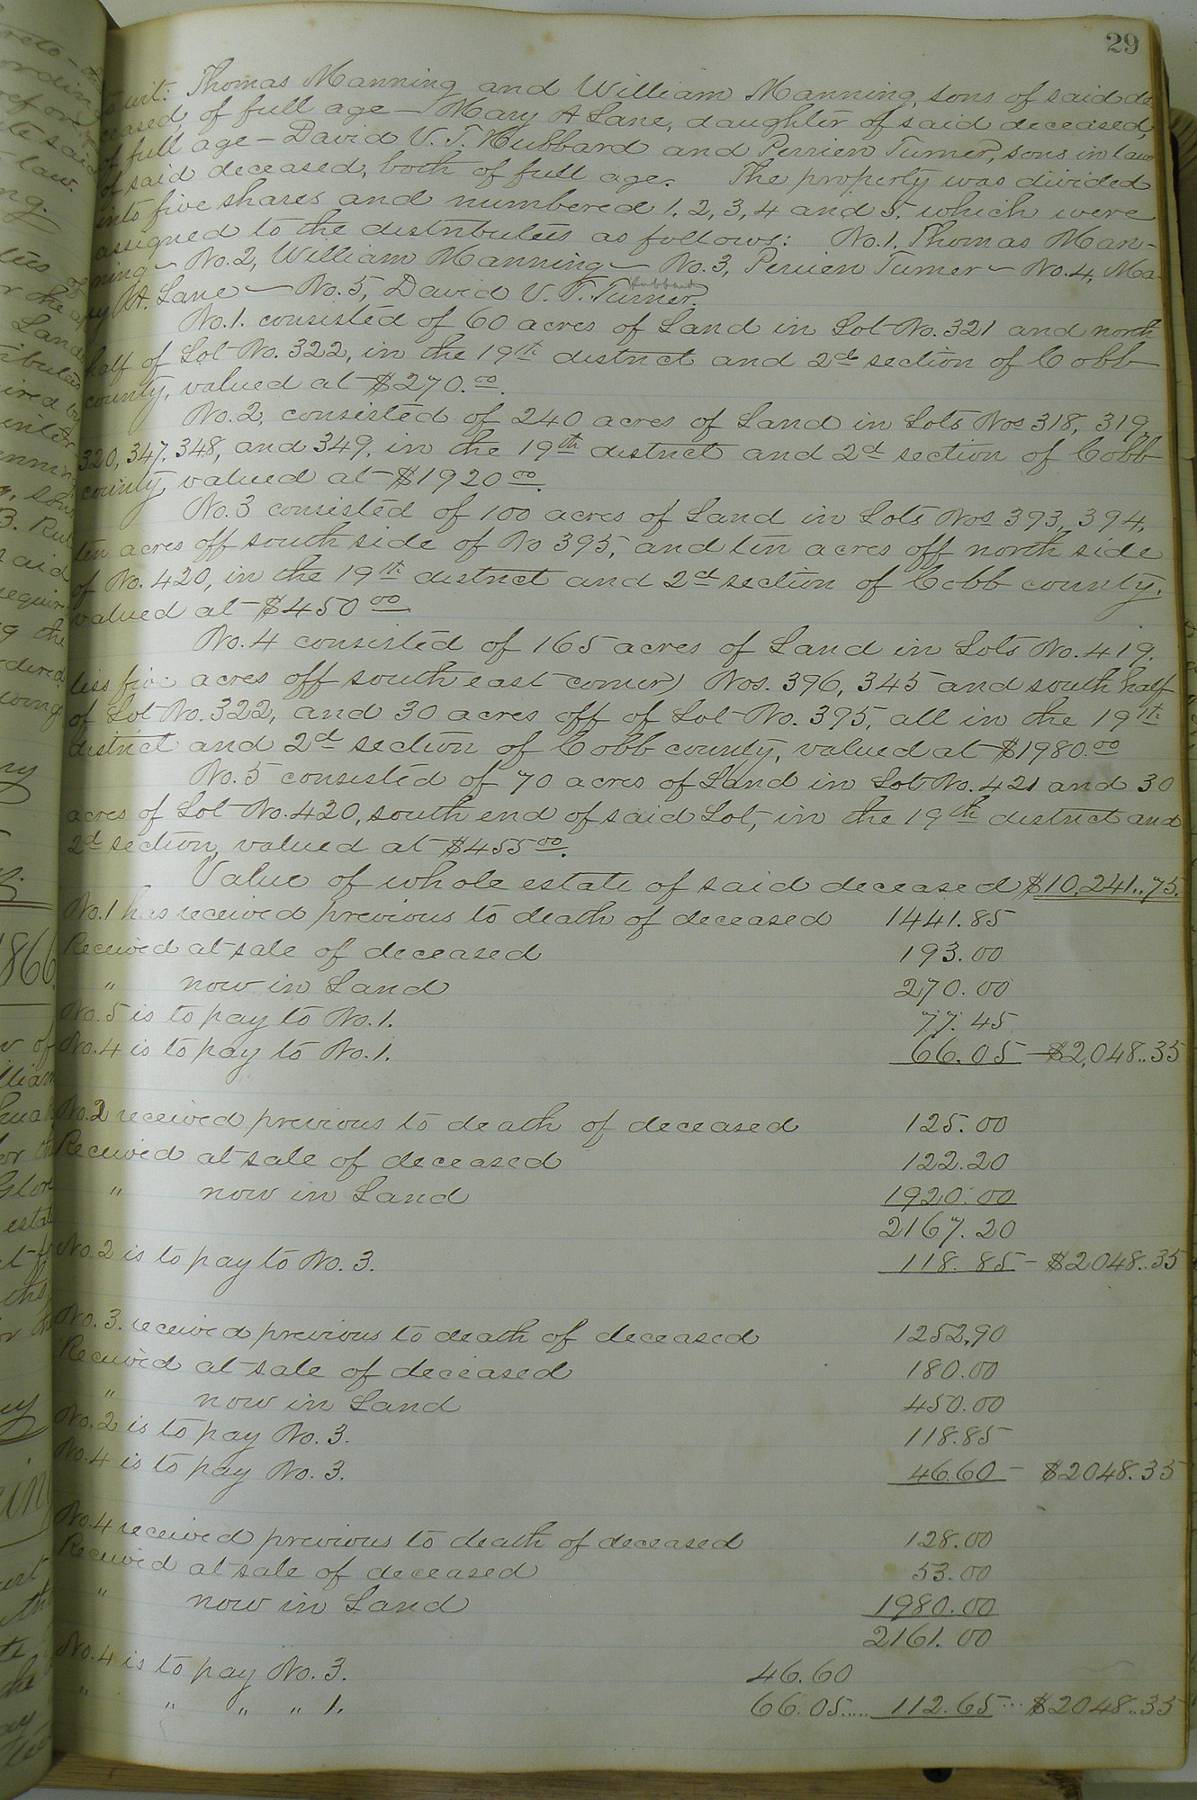 29
to wit: Thomas Manning and William Manning, sons of said de
ceased, of full age — Mary A Lane, daughter of said deceased,
of full age — David V. T. Hubbard and Perrien Turner, sons in law
of said deceased, both of full age. The property was divided
into five shares and numbered 1, 2, 3, 4 and 5, which were
assigned to the distributees as follows: No. 1, Thomas Man-
ning — No. 2, William Manning — No. 3, Perrien Turner — No. 4, Ma-
ry A. Lane — No. 5, David V. T. Turner. Hubbard
No. 1. consisted of 60 acres of Land in Lot No. 321 and north
half of Lot No. 322, in the 19th district and 2d section of Cobb
county, valued at $270.00.
No. 2, consisted of 240 acres of Land in Lots Nos 318, 319,
320, 347, 348, and 349, in the 19th district and 2d section of Cobb
county, valued at $1920 00.
No. 3 consisted of 100 acres of Land in Lots Nos 393, 394,
ten acres off south side of No 395, and ten acres off north side
of No. 420, in the 19th district and 2d section of Cobb county,
valued at $450 00.
No. 4 consisted of 165 acres of Land in Lots No. 419.
less five acres off south east corner) Nos. 396, 345 and south half
of Lot No. 322, and 30 acres off of Lot No. 395, all in the 19th
district and 2d section of Cobb county, valued at $1980.00
No. 5 consisted of 70 acres of Land in Lot No. 421 and 30
acres of Lot No. 420, south end of said Lot, in the 19th district and
2d section, valued at $455 00.
Value of whole estate of said deceased $10,241..75.
No. 1 has received previous to death of deceased 1441.85
Received at sale of deceased 193.00
" now in Land 270.00
No. 5 is to pay to No. 1. 77.45
No. 4 is to pay to No. 1. 66.05 — $2,048..35
No. 2 received previous to death of deceased 125.00
Received at sale of deceased 122.20
" now in Land 1920.00
2167.20
No. 2 is to pay to No. 3. 118.85 — $2048..35
No. 3. received previous to death of deceased 1252,90
Received at sale of deceased 180.00
" now in Land 450.00
No. 2 is to pay No. 3. 118.85
No. 4 is to pay No. 3. 46.60 — $2048.35
No. 4 received previous to death of deceased 128.00
Received at sale of deceased 53.00
" now in Land 1980.00
2161.00
No. 4 is to pay No. 3. 46.60
" " " " 1. 66.05..... 112.65 ... $2048..35